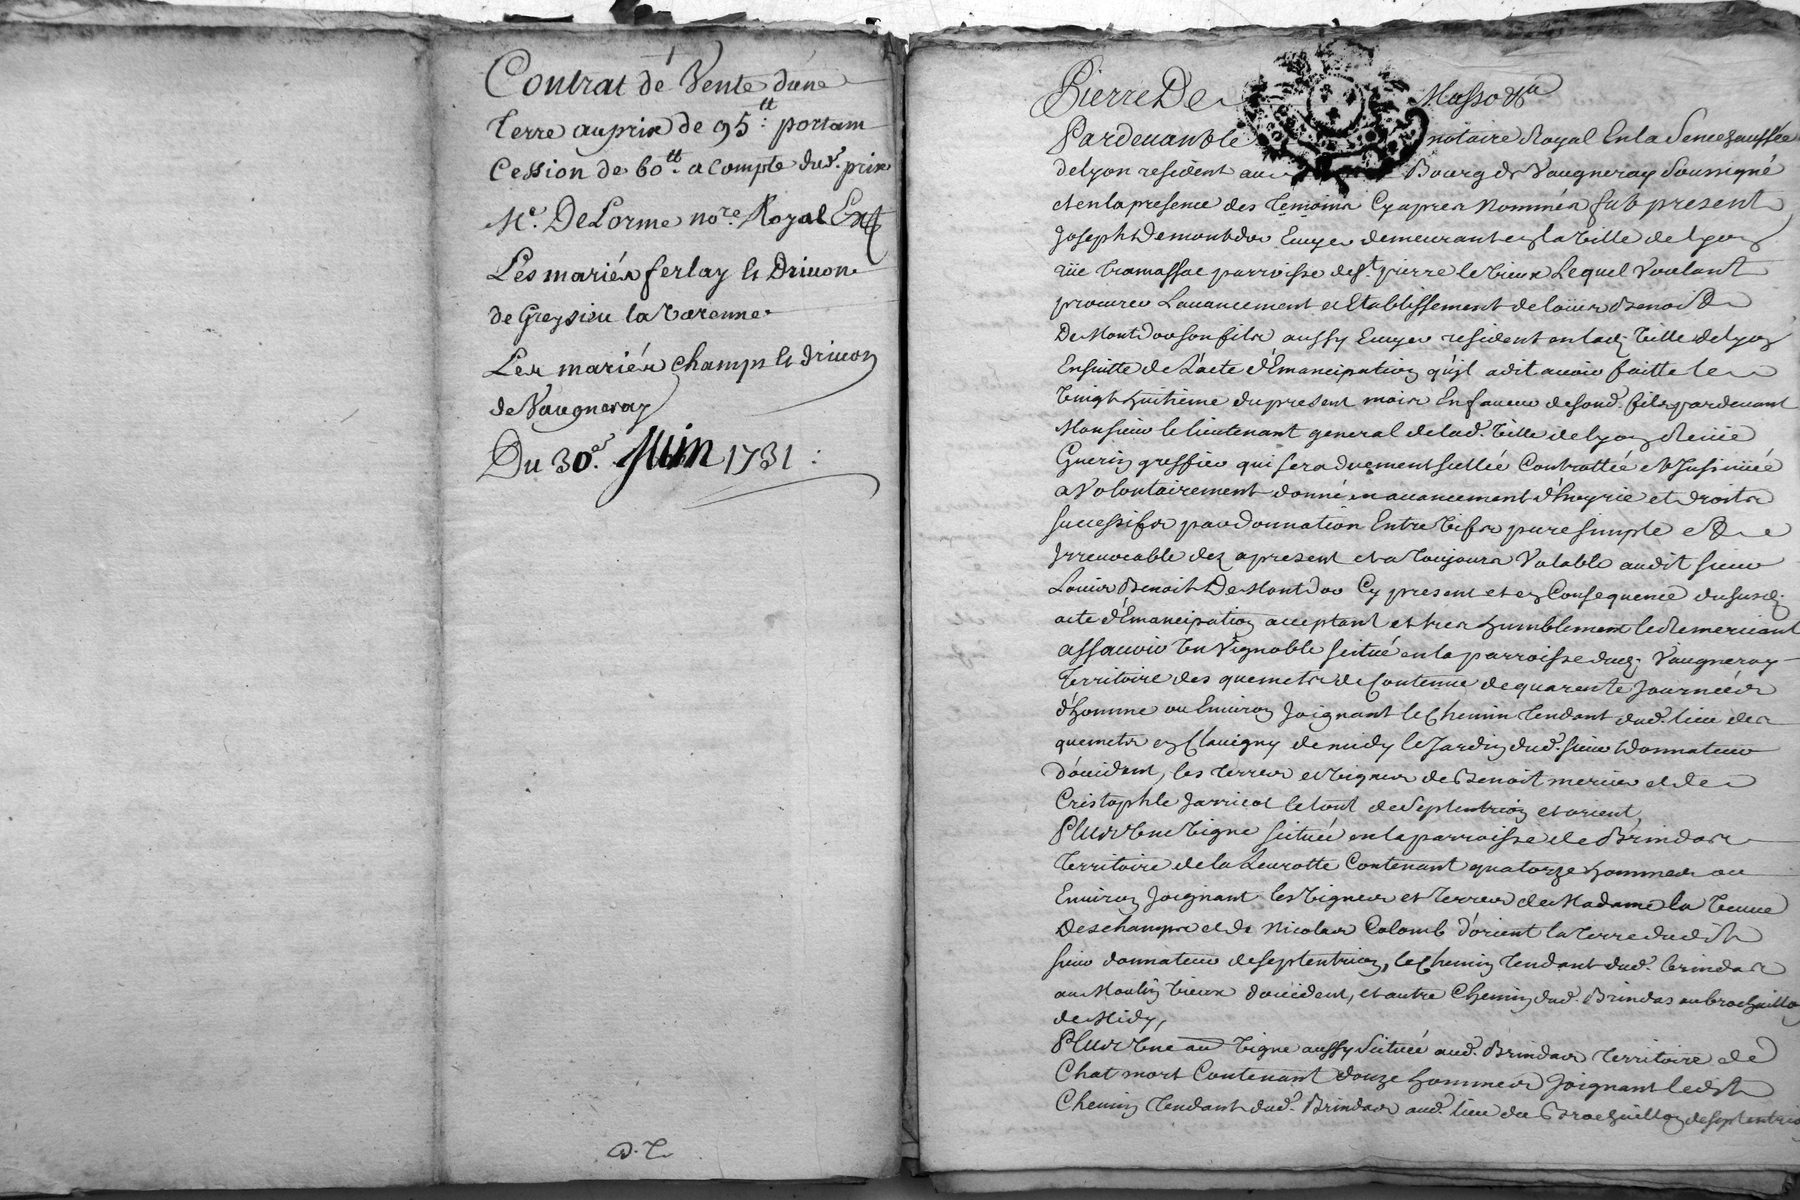 Contrat de Vente d'une
Terre au prix de 95.tt portam
Cession de 60.tt a compte dud. prix
Me. DeLorme nore. Royal
Les mariés ferlay et Drivon
de Greysieu la varenne
Les mariés champs et drivon
de Vaugneray
Du 30e. Juin 1731 :
D. T.
Pierre De Masso &a
Pardevant le notaire Royal En la Senechaussée
de lyon resident au Bourg de Vaugneray Soussigné
et en la presence des Temoins Cy apres Nommés fut present
Joseph Demontdor Ecuyer demeurant en la Ville de lyon
rüe Tramassac parroisse de St. pierre le vieux Lequel Voulant
procurer Lavancement et Etablissement de loüis Benoist
De Montdor son fils aussy Ecuyer resident en lad. Ville de lyon
Ensuitte de L'acte d'Emancipation qu'il a dit avoir faitte le
Vingt huitième du present mois En faveur de sond. fils pardevant
Monsieur le lieutenant general de lad. Ville de lyon
Guerin greffier qui sera duement scellée Controllée et Insinüée
a Volontairement donné en avancement d'hoyrie et droits
successifs par donnation Entre vifs pure simple et
Irrevocable dez apresent et a Toujours Valable audit sieur
Louis Benoist De Montdor Cy present et en Consequence du susd.
acte d'Emancipation acceptant et tres humblement le Remerciant
assavoir Un Vignoble scitué en la parroisse dud. Vaugneray
Territoire des quemets de Contenue de quarente Journées
d'homme ou Environ Joignant le Chemin Tendant dud. lieu des
quemets en Clavigny de midy le Jardin dud. sieur Donnateur
d'occident, les Terres et Vignes de Benoit mercier et de
Cristophle Jarricot le tout de Septentrion et orient,
Plus Une Vigne scituée en la parroisse de Brindas
Territoire de la Leurotte Contenant quatorze hommes ou
Environ Joignant les Vignes et Terres de Madame la Veuve
Deschamps et de Nicolas Colomb d'orient la Terre dudit
sieur donnateur de septentrion, le Chemin Tendant dud. brindas
au Moulin Vieux d'occident, et autre Chemin dud. Brindas au brochaillon
de Midy,
Plus Une au Vigne aussy scituée aud. Brindas Territoire de
Chat mort Contenant douze hommes Joignant ledit
Chemin Tendant dud. Brindas aud. lieu du Brochaillon de septentrion